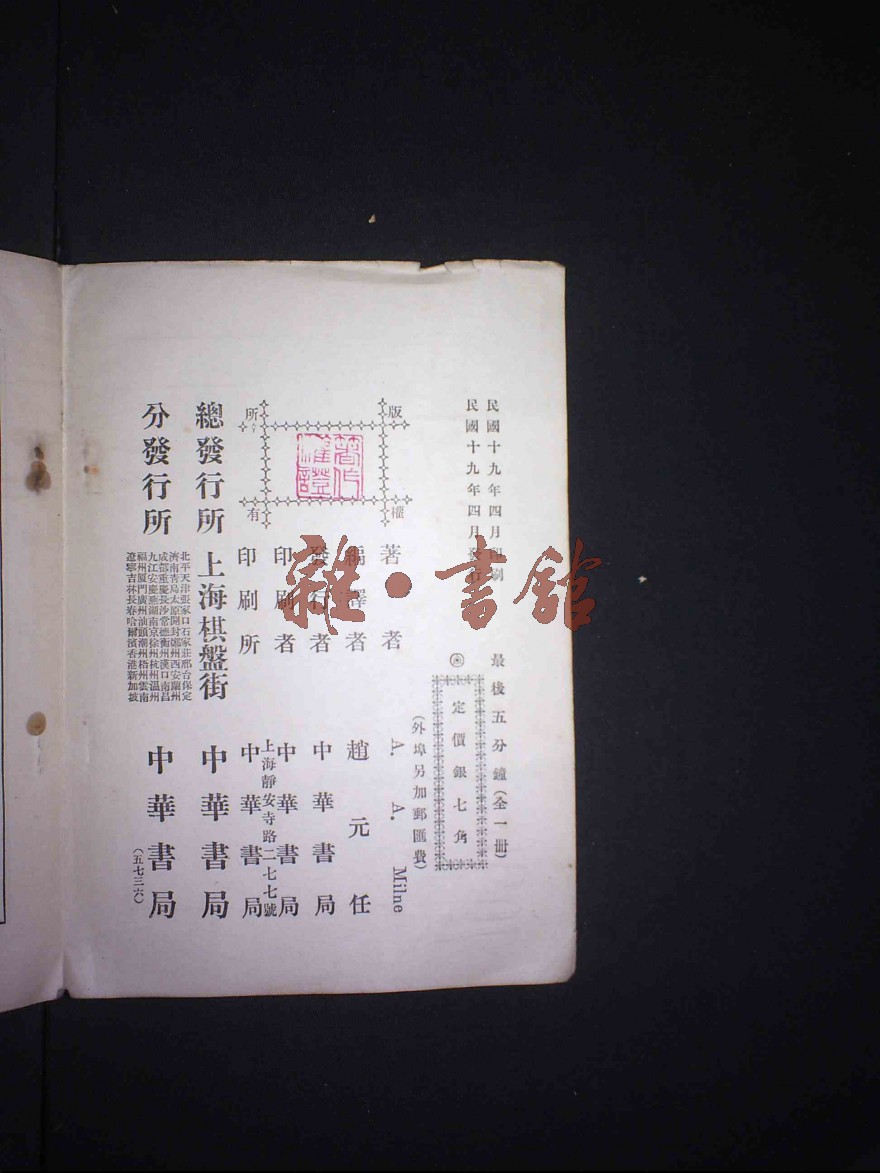 民國十九年四月印刷
民國十九年四月發行
最後五分鐘(全一冊)
定價銀七角
(外埠另加郵匯費)
著者 A. A. Milne
編譯者 趙元任
發行者 中華書局
印刷者 中華書局
上海靜安寺路二七七號
印刷所 中華書局
版權所有
著作權證
總發行所 上海棋盤街 中華書局
分發行所 中華書局
北平天津張家口石家莊邢台保定
濟南青島太原開封鄭州西安蘭州
成都重慶長沙常德衡州漢口南昌
九江安慶蕪湖南京徐州杭州溫州
福州廈門廣州汕頭潮州梧州雲南
遼寧吉林長春哈爾濱香港新加坡
(五七三六)
雜·書館